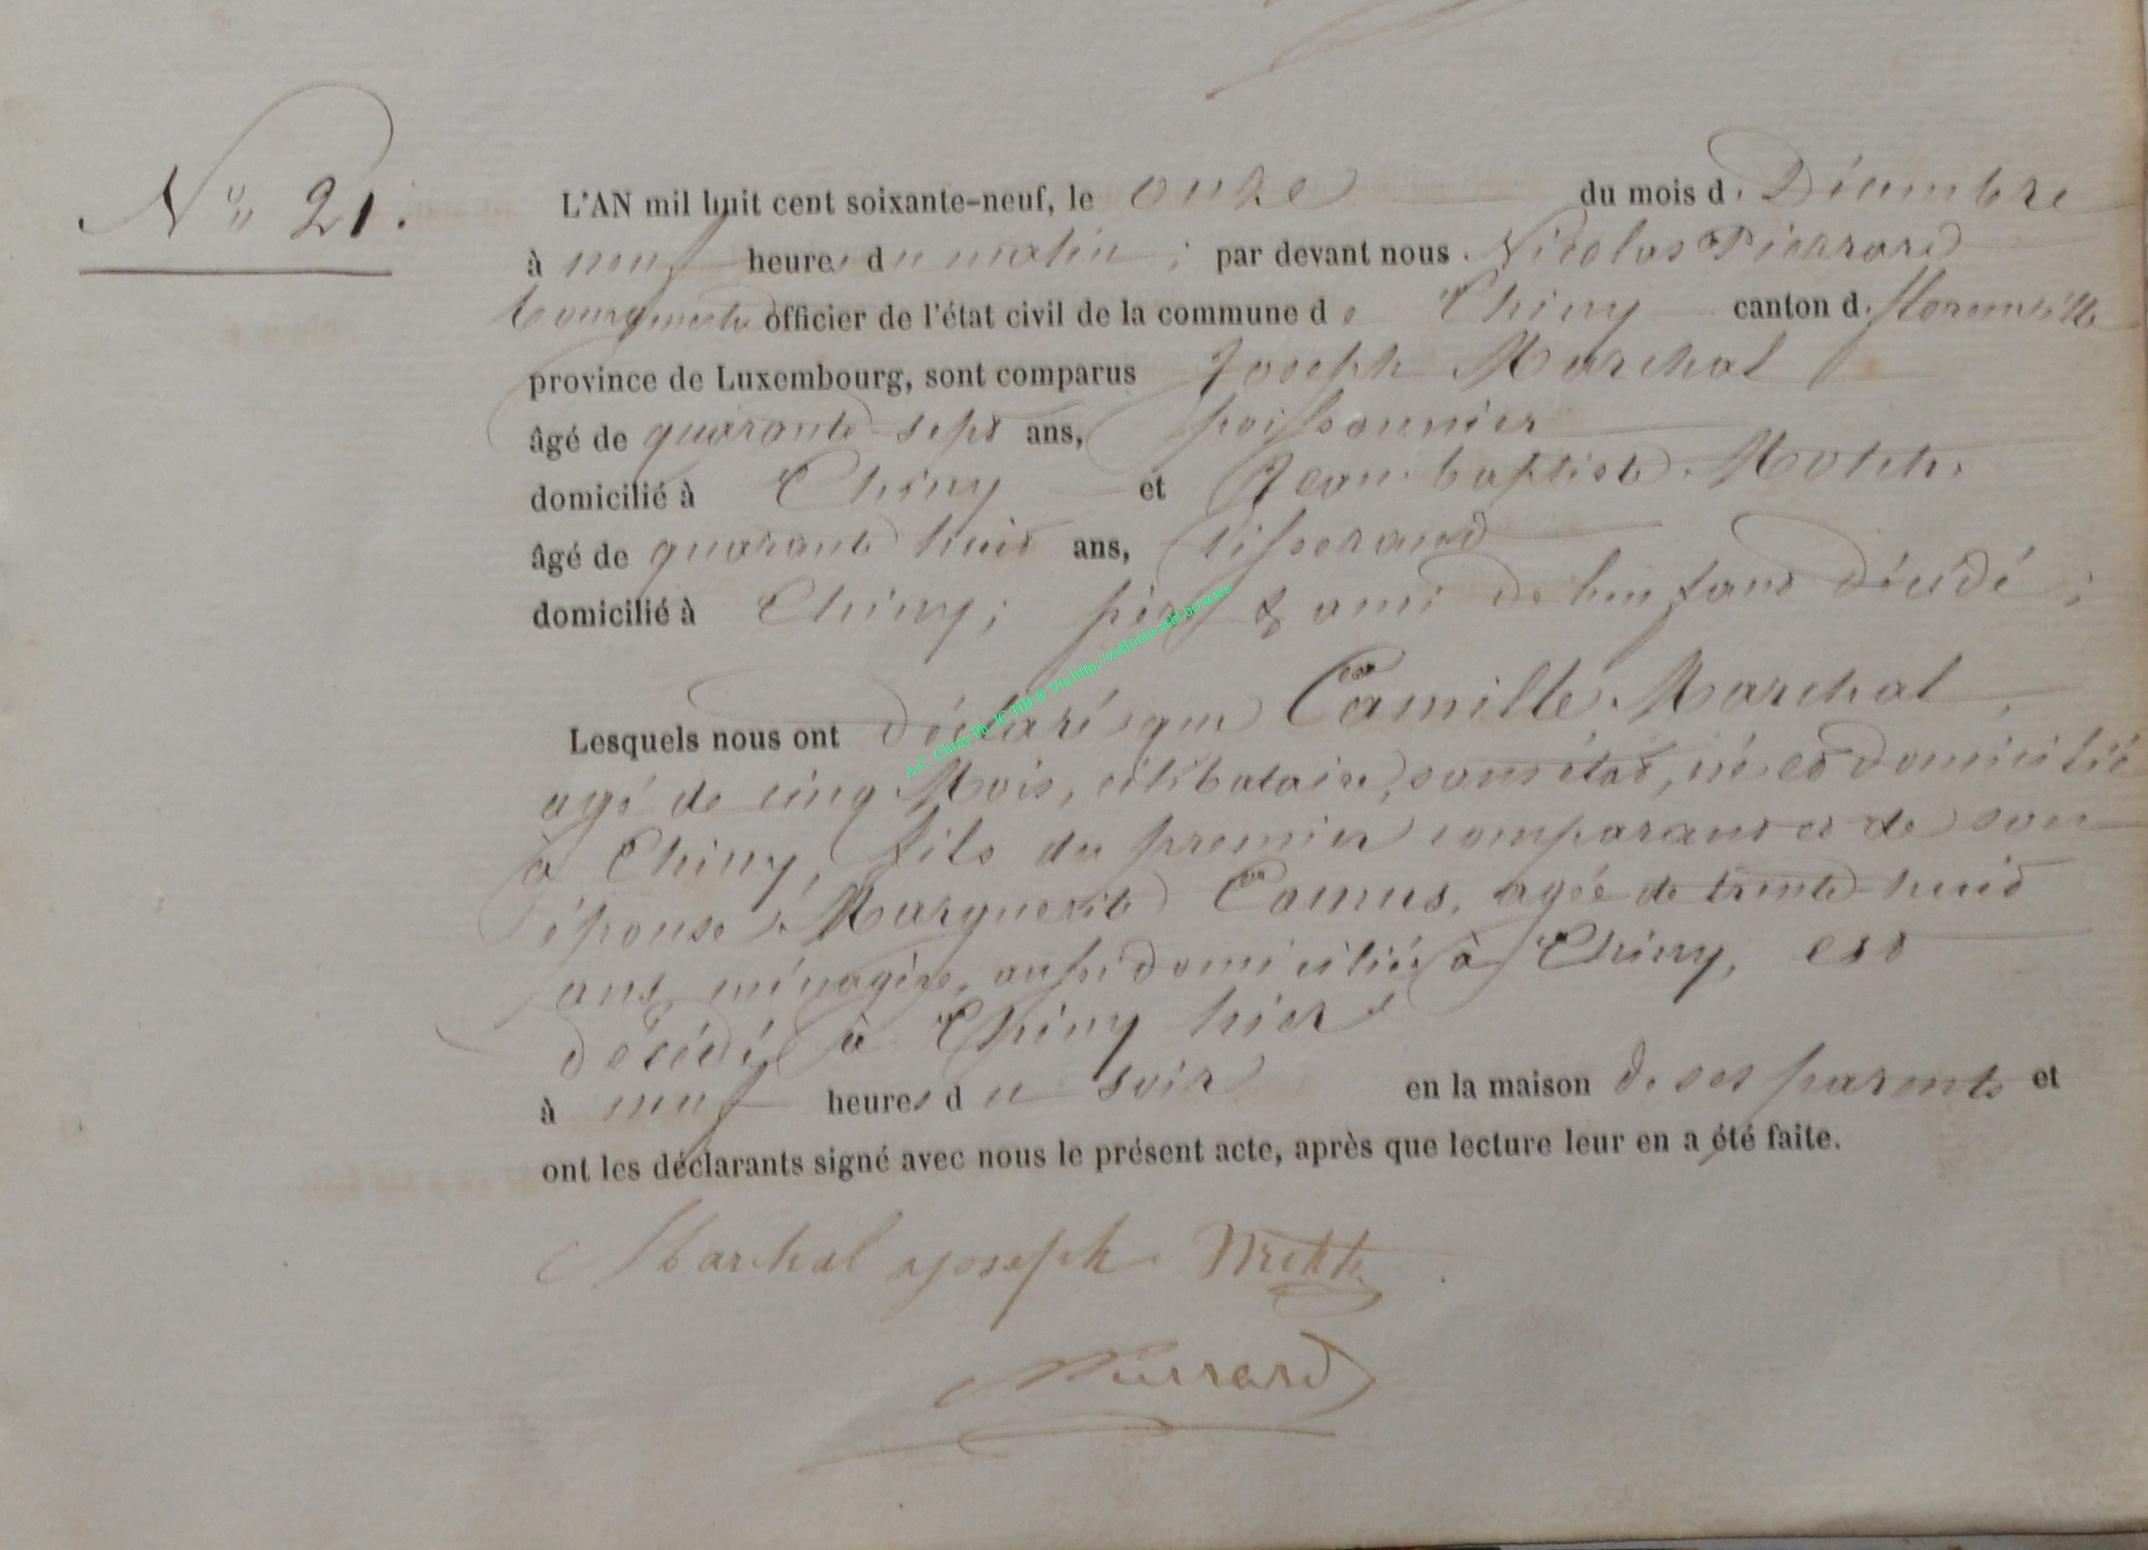 No 21.
L'AN mil huit cent soixante-neuf, le onze du mois de Décembre
à neuf heures du matin ; par devant nous Nicolas Pierrard
bourgmestre officier de l'état civil de la commune de Chiny canton de florenville
province de Luxembourg, sont comparus Joseph Marchal
âgé de quarante-sept ans, poissonnier
domicilié à Chiny et Jean-baptiste
âgé de quarante huit ans, tisserand
domicilié à Chiny ; père & ami de l'enfant décédé ;
Lesquels nous ont déclaré que Camille Marchal,
agé de cinq Mois, célibataire, sans état, né et domicilié
à Chiny, fils du premier comparant et de son
épouse Marguerite Camus, agée de trente-huit
ans, ménagère, aussi domiciliée à Chiny, est
décédé à Chiny hier
à neuf heures du soir en la maison de ses parents et
ont les déclarants signé avec nous le présent acte, après que lecture leur en a été faite.
Marchal joseph
Pierrard
A.C. Chiny Ph. JC HH & Via http://wallonia-asbl.be/actes